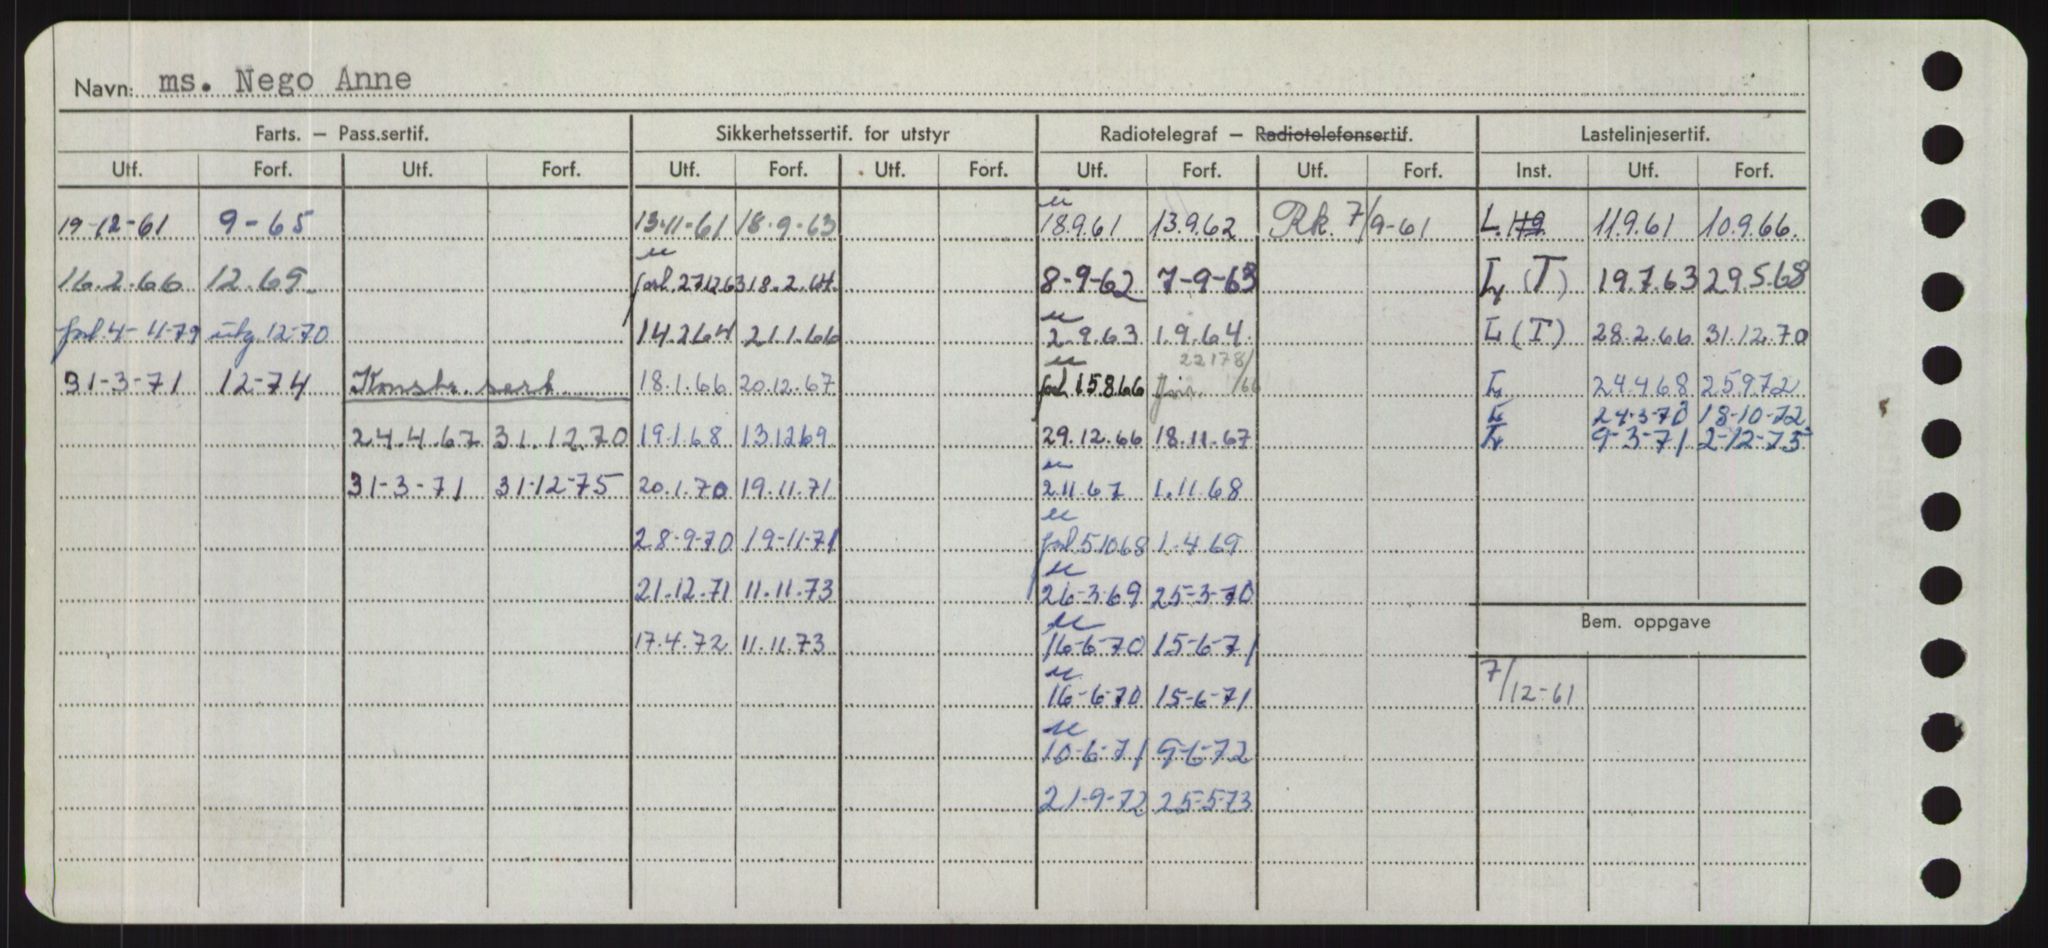 Navn: ms. Nego Anne
Farts. – Pass.sertif. Sikkerhetssertif. for utstyr Radiotelegraf – Radiotelefonsertif. Lastelinjesertif.
Utf. Forf. Utf. Forf. Utf. Forf. Utf. Forf. Utf. Forf. Utf. Forf. Inst. Utf. Forf.
19-12-61 9-65 13-11-61 18-9-63 18.9.61 13.9.62 Rk. 7/9-61 L. 11.9.61 10.9.66.
16.2.66 12.69. forl. 27.12.63 18.2.64 8-9-62 7-9-63 L (T) 19.7.63 29.5.68
forl. 4-11-79 utg. 12-70 14.2.64 21.1.66 2.9.63 1.9.64. L (T) 28.2.66 31.12.70
22178/
31-3-71 12-74 Konstr. sert. 18.1.66 20.12.67 forl. 15.8.66 /66 L 24.4.68 25.9.72
L 24-3-70 18-10-72
24.4.67 31.12.70 19.1.68 13.12.69 29.12.66 18.11.67 L 9-3-71 2-12-75
31-3-71 31-12-75 20.1.70 19.11.71 2.11.67 1.11.68
28-9-70 19-11-71 forl. 5.10.68 1.4.69
21.12.71 11.11.73 26-3-69 25-3-70
Bem. oppgave
17.4.72 11.11.73 16-6-70 15-6-71
7/12-61
16-6-70 15-6-71
10-6-71 9-6-72
21-9-72 25-5-73